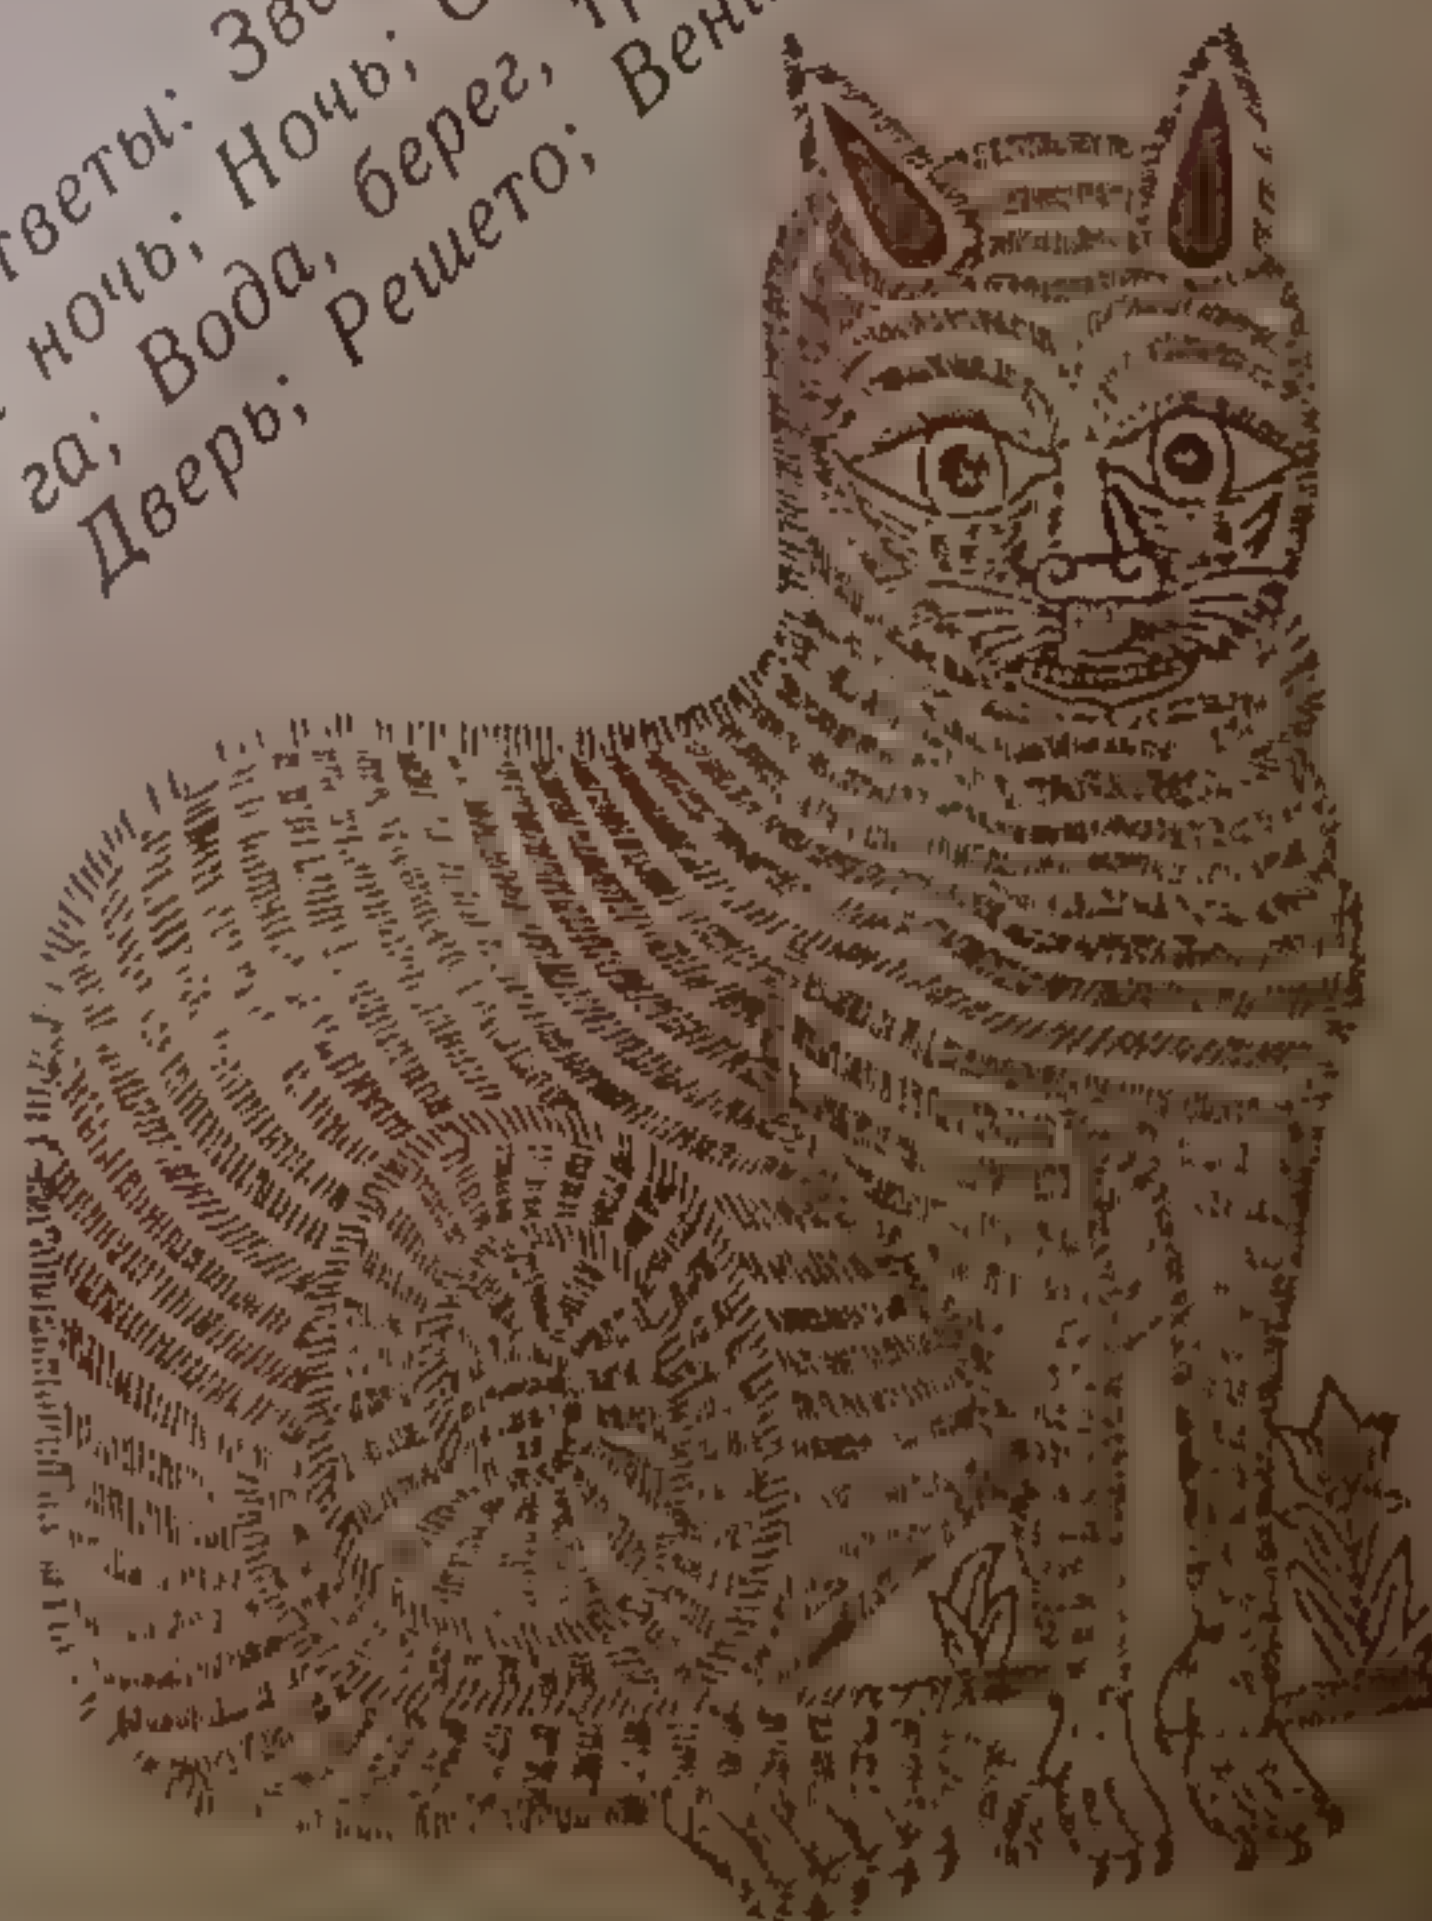 тветы: Зве
ночь; Ночь; С
га; Вода, берег, тр
Дверь; Решето; Вени